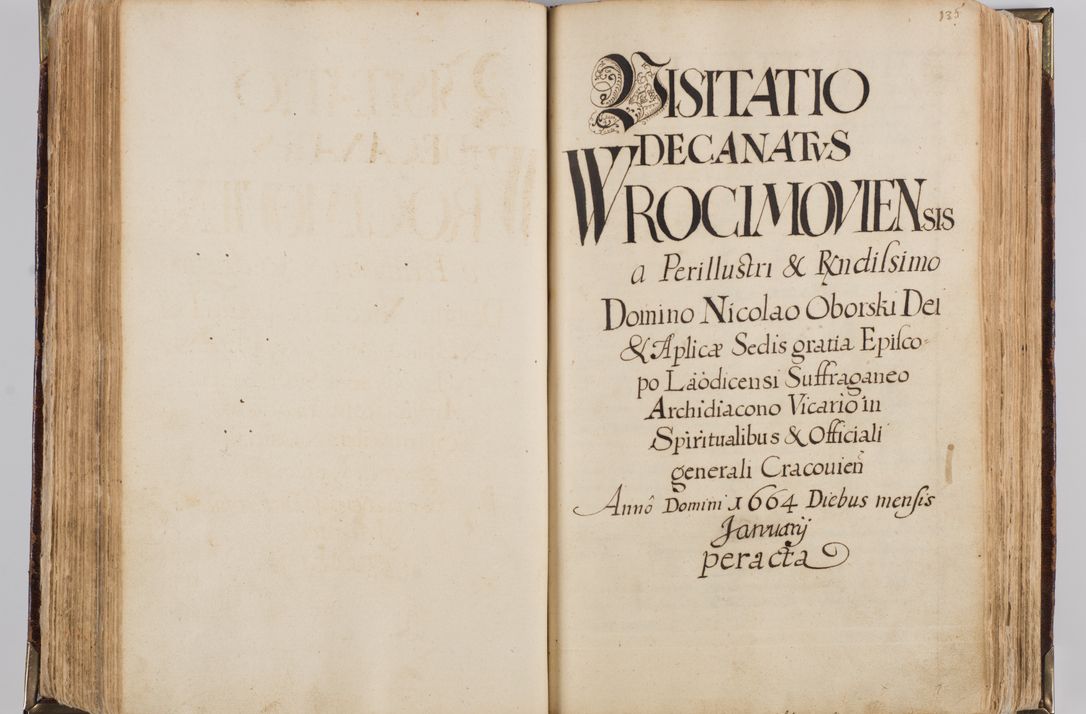 135
VISITATIO
DECANATVS
WROCIMOVIENSIS
a Perillustri & Rñdissimo
Domino Nicolao Oborski Dei
& Aplicæ Sedis gratia Episco-
po Läödicensi Suffraganeo
Archidiacono Vicario in
Spiritualibus & Officiali
generali Cracovieñ
Annô Domini 1664 Diebus mensis
Januarij
peracta